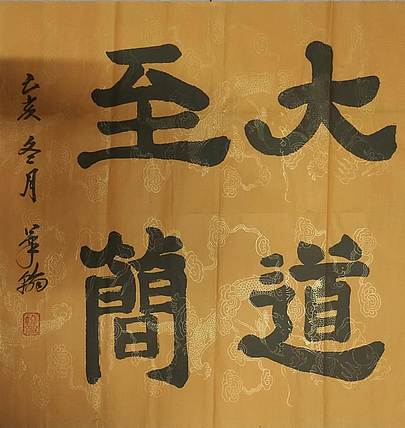 大道
至簡
己亥冬月